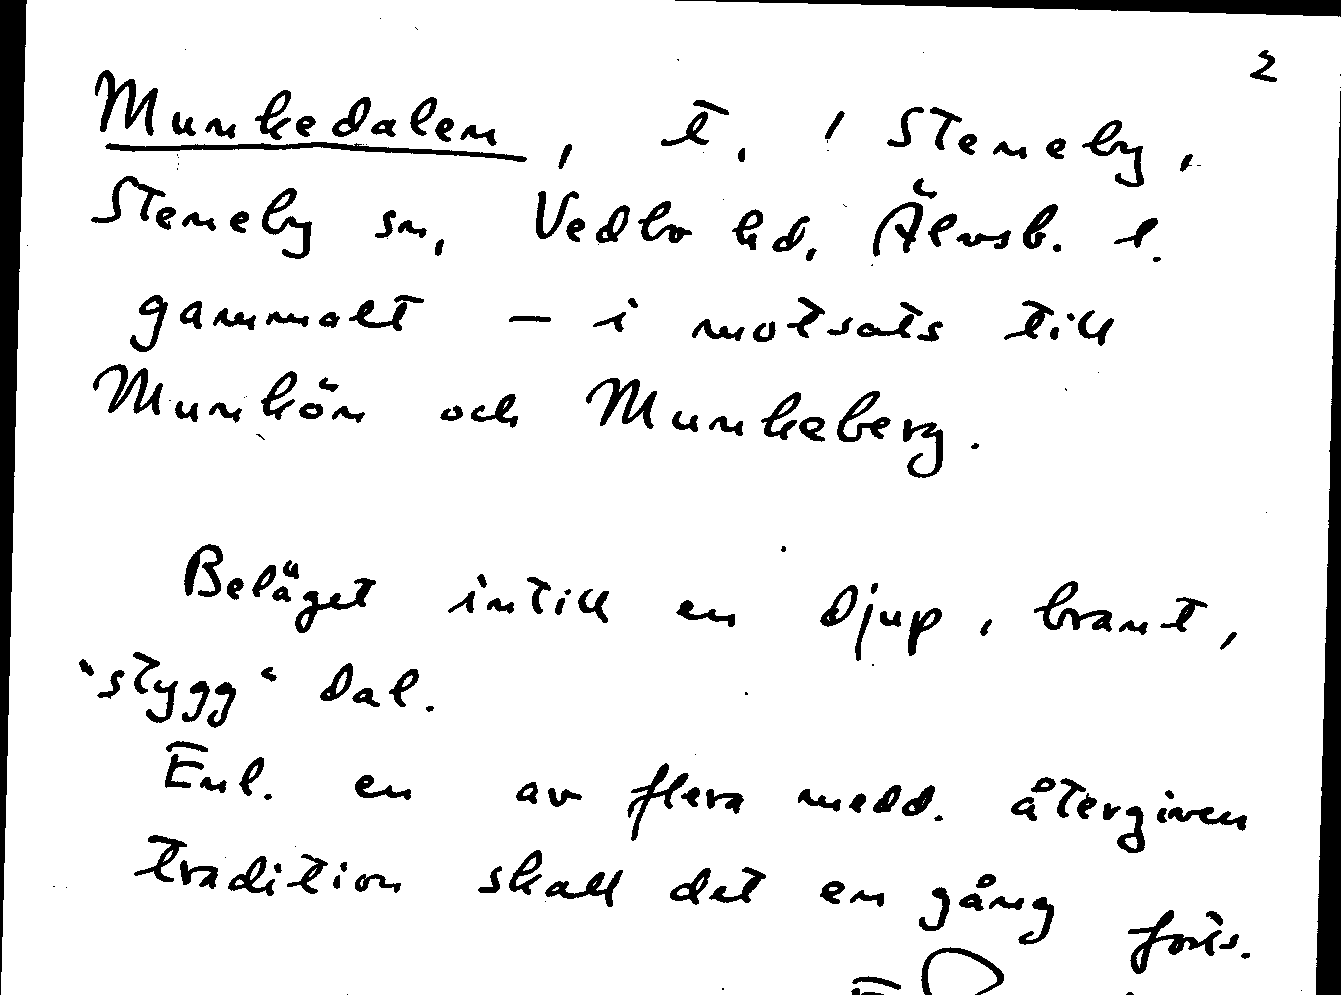 2
Munkedalen, t. / Steneby,
Steneby sn, Vedbo hd, Älvsb. l.
gammalt – i motsats till
Munkön och Munkeberg.
Beläget intill en djup, brant,
"stygg" dal.
Enl. en av flera medd. återgiven
tradition skall det en gång
forts.